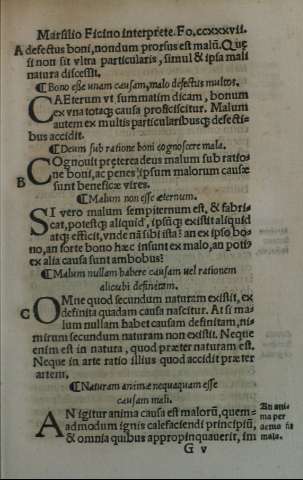 Marsilio Ficino interprete. Fo. ccxxxvii.
A defectus boni, nondum prorsus est malũ. Quę
si non sit vltra particularis, simul & ipsa mali
natura discessit.
¶ Bono esse unam causam, malo defectus multos.
CAEterum vt summatim dicam, bonum
ex vna totaq; causa proficiscitur. Malum
autem ex multis particularibusq; defecti-
bus accidit.
¶ Deum sub ratione boni cognoscere mala.
COgnouit pręterea deus malum sub ratio-
B
ne boni, ac penes ipsum malorum causæ
sunt beneficæ vires.
¶ Malum non esse æternum.
SI vero malum sempiternum est, & fabri-
cat, potestq; aliquid, ipsũq; existit aliquid
atq; efficit, vnde nã sibi ista? an ex ipso bo-
no, an forte bono hæc insunt ex malo, an poti9
ex alia causa sunt ambobus?
¶ Malum nullam habere causam uel rationem
alicubi definitam.
C
OMne quod secundum naturam existit, ex
definita quadam causa nascitur. At si ma-
lum nullam habet causam definitam, ni-
mirum secundum naturam non existit. Neque
enim est in natura, quod præter naturam est.
Neque in arte ratio illius quod accidit præter
artem.
¶ Naturam animæ nequaquam esse
causam mali.
AN igitur anima causa est malorũ, quem-
admodum ignis calefaciendi principiũ,
& omnia quibus appropinquauerit, im
An ani-
ma per
mala.
G v